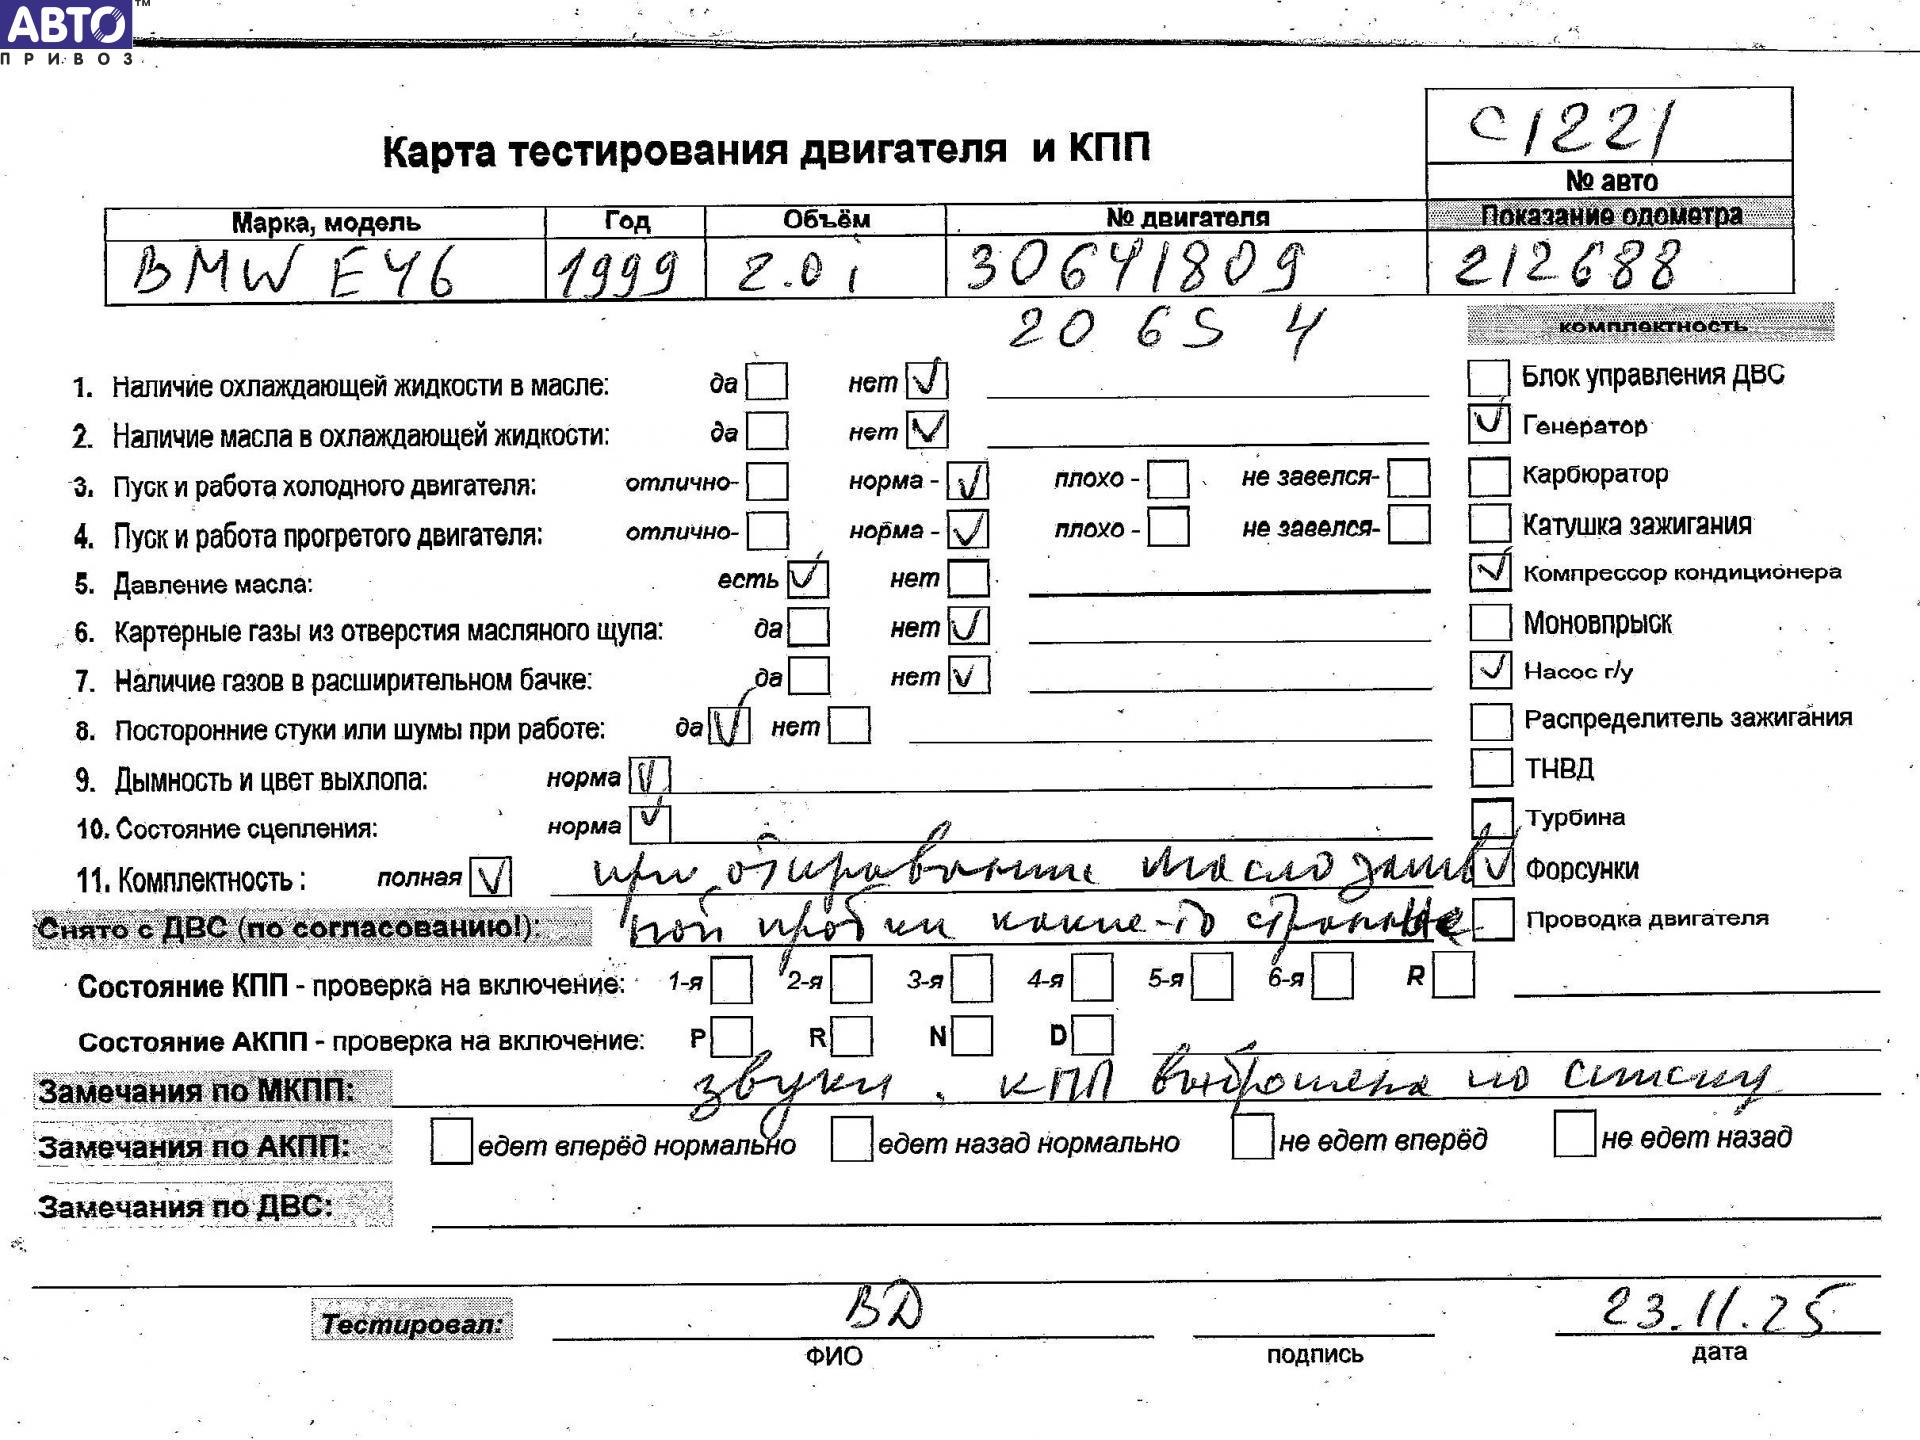 АВТО™
ПРИВОЗ
С1221
Карта тестирования двигателя и КПП
№ авто
Марка, модель Год Объём № двигателя Показание одометра
BMW E46 1999 2.0i 30641809 212688
206S4
комплектность
1. Наличие охлаждающей жидкости в масле: да нет Блок управления ДВС
2. Наличие масла в охлаждающей жидкости: да нет Генератор
3. Пуск и работа холодного двигателя: отлично- норма - плохо - не завелся- Карбюратор
4. Пуск и работа прогретого двигателя: отлично- норма - плохо - не завелся- Катушка зажигания
5. Давление масла: есть нет Компрессор кондиционера
6. Картерные газы из отверстия масляного щупа: да нет Моновпрыск
7. Наличие газов в расширительном бачке: да нет Насос г/у
8. Посторонние стуки или шумы при работе: да нет Распределитель зажигания
9. Дымность и цвет выхлопа: норма ТНВД
10. Состояние сцепления: норма Турбина
11. Комплектность : полная при маслозалив Форсунки
Снято с ДВС (по согласованию!): ной пробки какие-то странные Проводка двигателя
Состояние КПП - проверка на включение: 1-я 2-я 3-я 4-я 5-я 6-я R
Состояние АКПП - проверка на включение: P R N D
Замечания по МКПП: звуки. КПП выброшена по списку
Замечания по АКПП: едет вперёд нормально едет назад нормально не едет вперёд не едет назад
Замечания по ДВС:
Тестировал: ВД 23.11.25
ФИО подпись дата